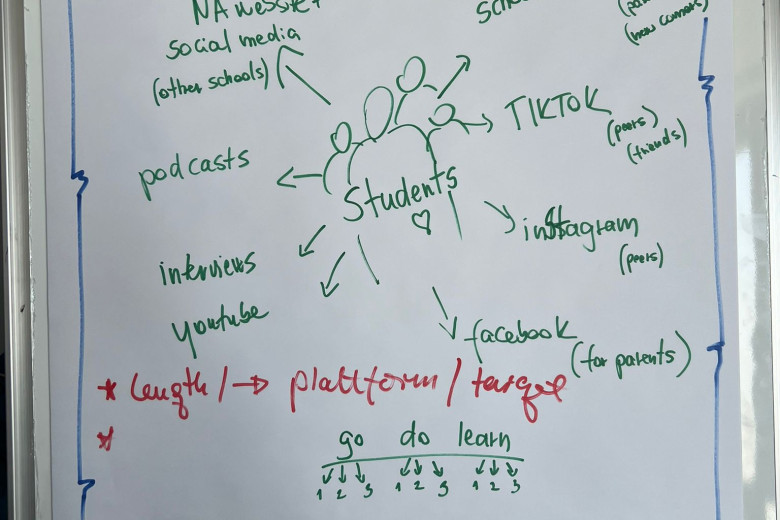 NA website
social media
(other schools)
podcasts
interviews
youtube
Students
TIKTOK
(peers)
(friends)
instagram
(peers)
facebook
(for parents)
(new comers)
* length / → plattform / targue
*
go do learn
1 2 3 1 2 3 1 2 3